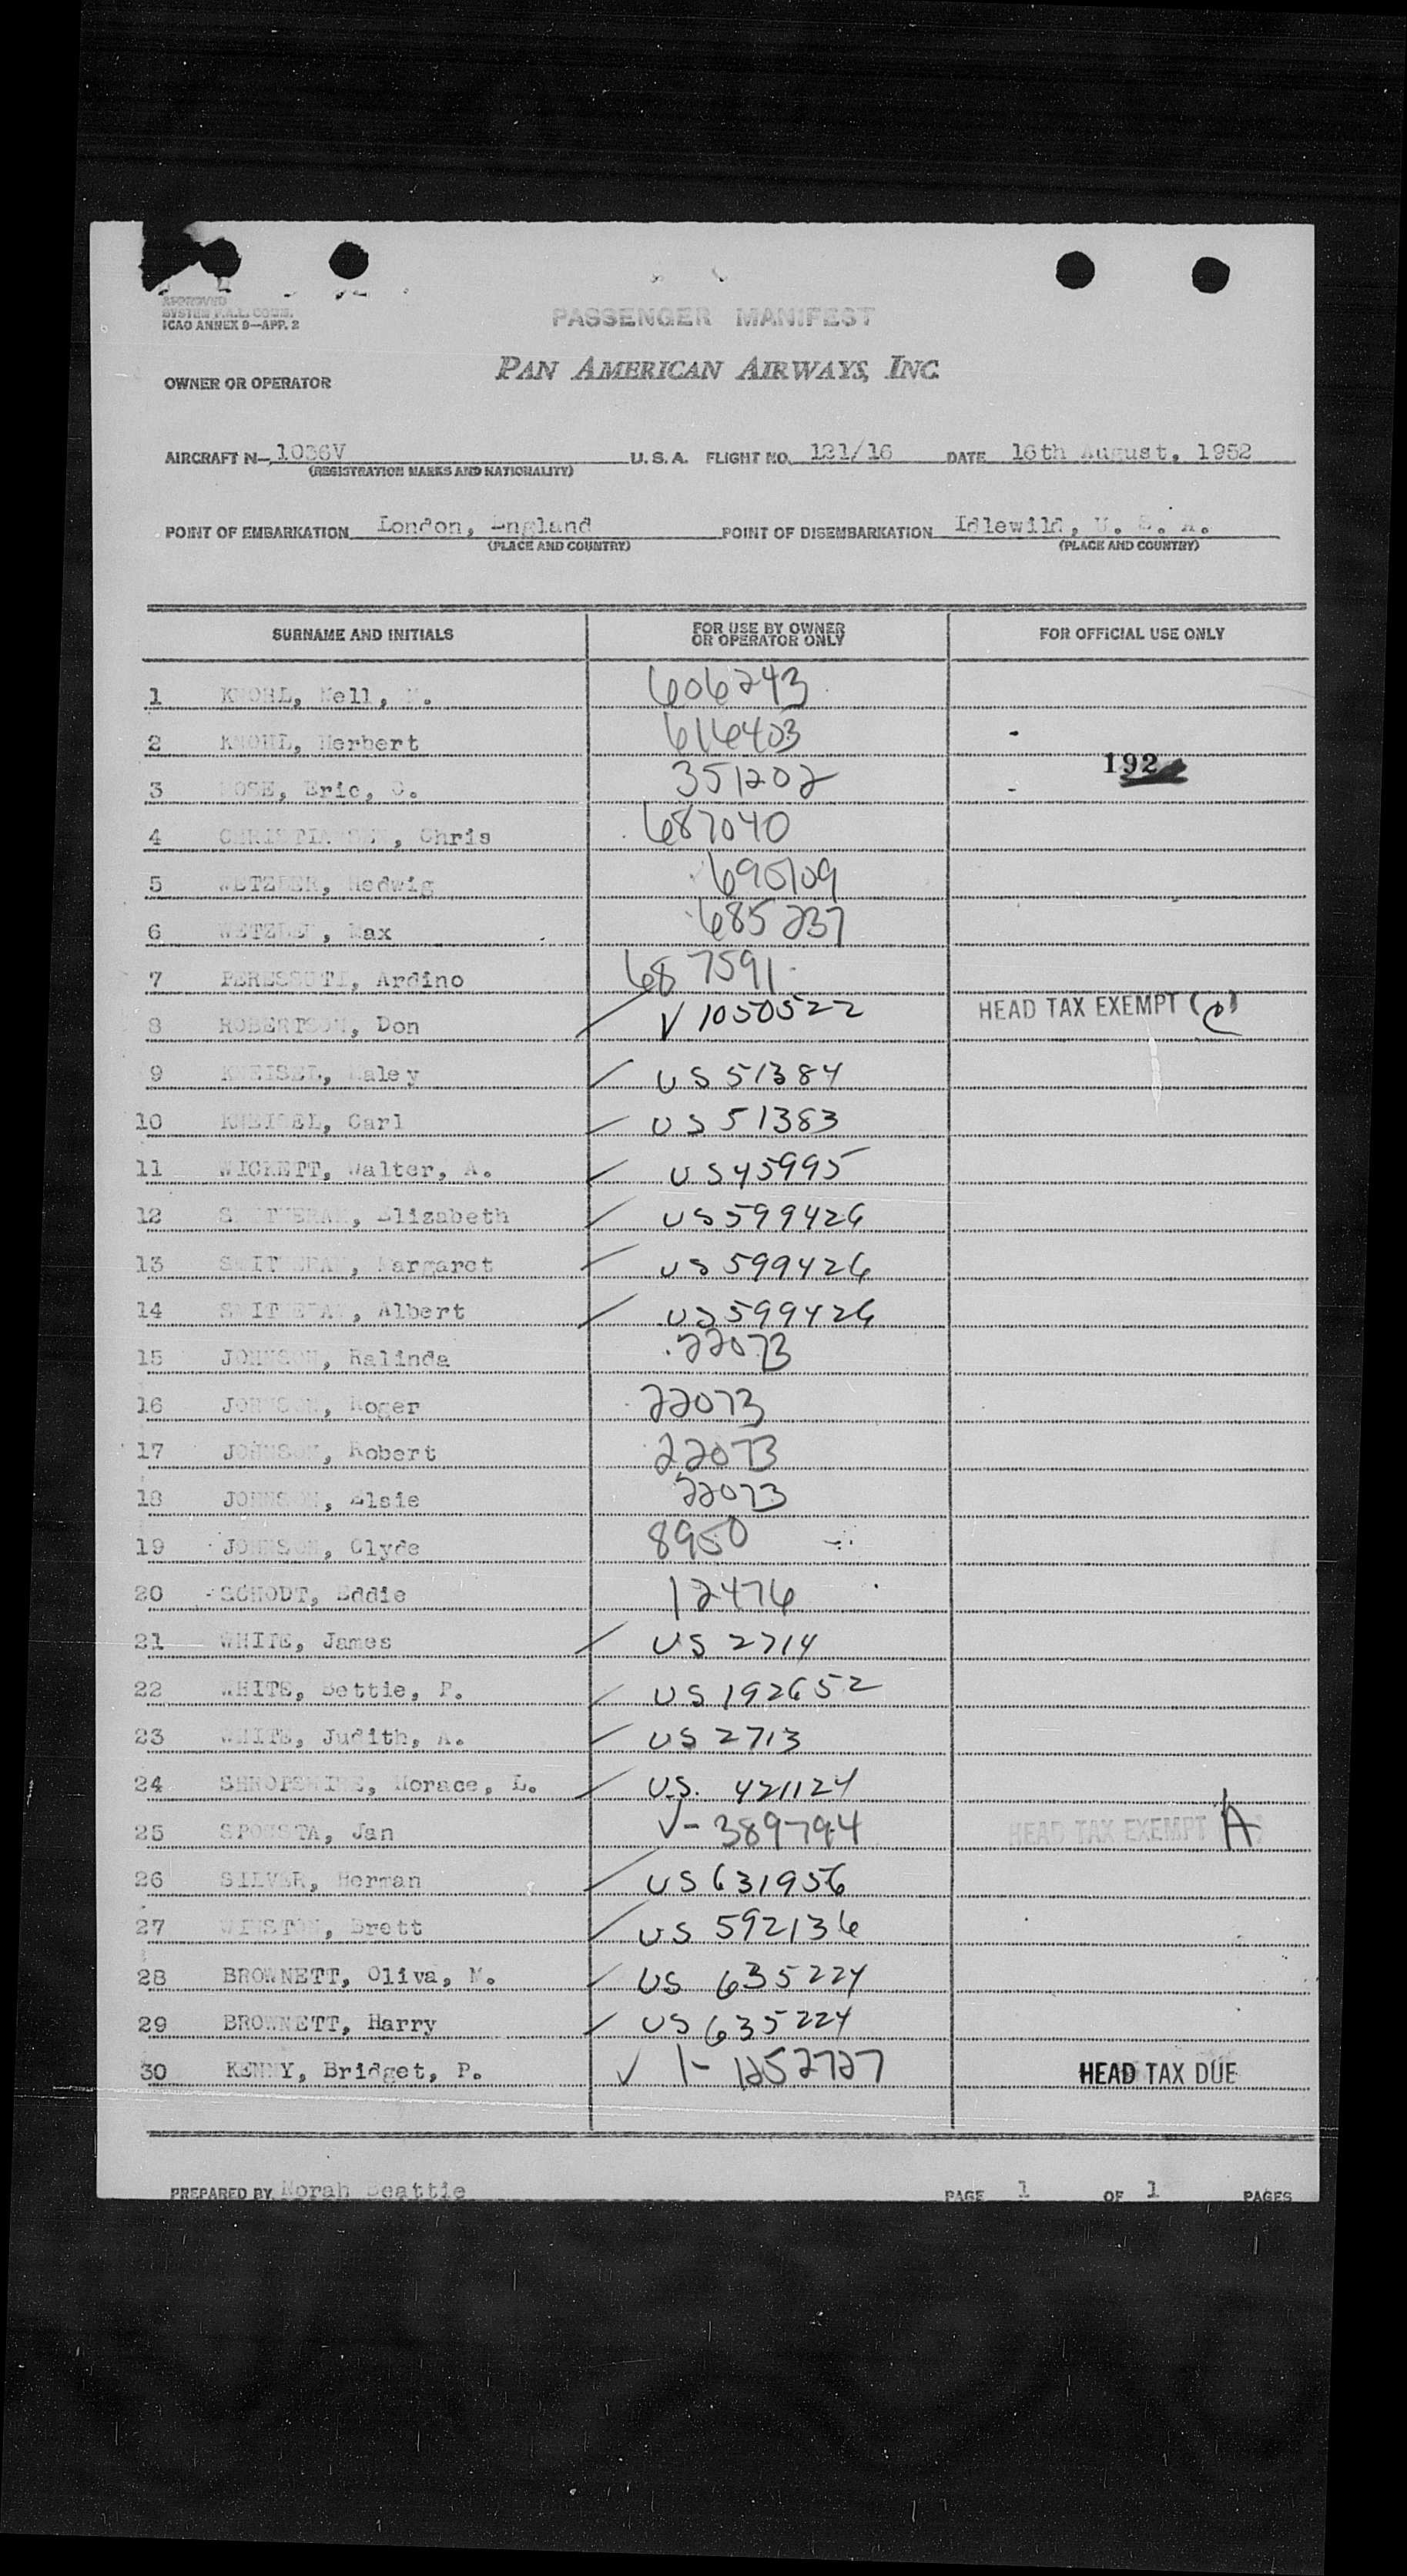 APPROVED
SYSTEM F.A.L. COMM.
ICAO ANNEX 9—APP. 2
PASSENGER MANIFEST
PAN AMERICAN AIRWAYS, INC.
OWNER OR OPERATOR
AIRCRAFT N— 1036V U. S. A. FLIGHT NO. 121/16 DATE 16th August, 1952
(REGISTRATION MARKS AND NATIONALITY)
POINT OF EMBARKATION London, England POINT OF DISEMBARKATION Idlewild, U. S. A.
(PLACE AND COUNTRY) (PLACE AND COUNTRY)
SURNAME AND INITIALS FOR USE BY OWNER OR OPERATOR ONLY FOR OFFICIAL USE ONLY
1 KNOHL, Nell, 606243
2 KNOHL, Herbert 616403
192
3 Eric, 351202
4 CHRISTIANSEN, Chris 687040
5 WETZLER, Hedwig 695709
6 WETZLER, Max 685237
7 PERESSUTI, Ardino 687591
8 ROBERTSON, Don V 1050522 HEAD TAX EXEMPT
9 KNEISEL, US 51384
10 KNEISEL, Carl US 51383
11 WICKETT, Walter, A. US 45995
12 SMITHERAM, Elizabeth US 599426
13 SMITHERAM, Margaret US 599426
14 SMITHERAM, Albert US 599426
15 JOHNSON, Kalinda 22073
16 JOHNSON, Roger 22073
17 JOHNSON, Robert 22073
18 JOHNSON, Elsie 22073
19 JOHNSON, Clyde 8950
20 SCHODT, Eddie 12476
21 WHITE, James US 2714
22 WHITE, Bettie, P. US 192652
23 WHITE, Judith, A. US 2713
24 SHROPSHIRE, Horace, L. U.S. 421124
25 SPOUSTA, Jan V- 389794 HEAD TAX EXEMPT A
26 SILVER, Herman US 631956
27 WINSTON, Brett US 592136
28 BROWNETT, Oliva, M. US 635224
29 BROWNETT, Harry US 635224
30 KENNY, Bridget, P. I- 1252727 HEAD TAX DUE
PREPARED BY Norah Beattie PAGE 1 OF 1 PAGES